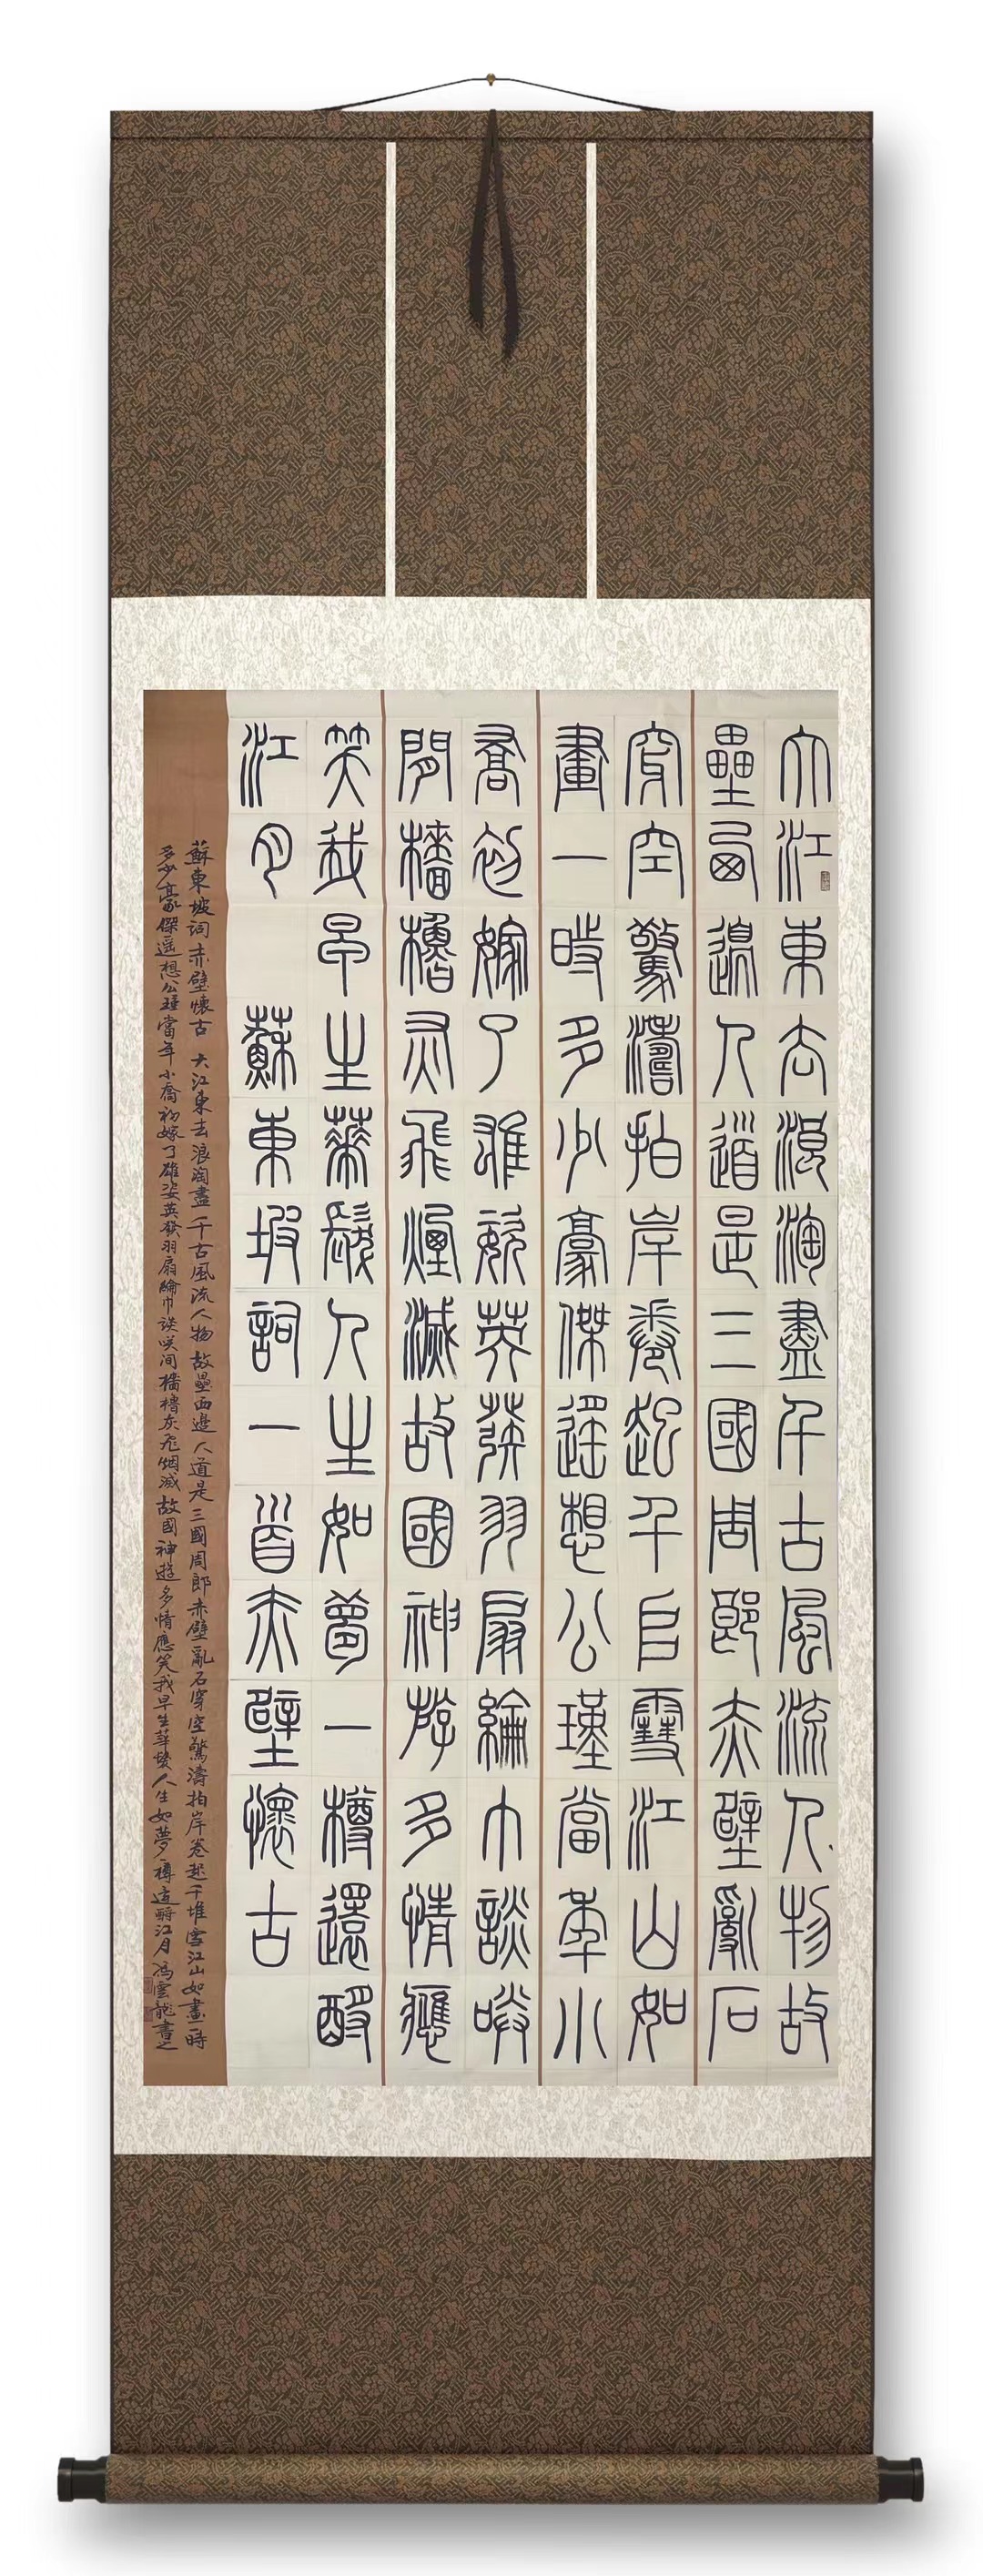 大江東去浪淘盡千古風流人物故
壘西邊人道是三國周郎赤壁亂石
穿空驚濤拍岸卷起千堆雪江山如
畫一時多少豪傑遙想公瑾當年小
喬初嫁了雄姿英發羽扇綸巾談咲
間檣櫓灰飛煙滅故國神游多情應
笑我早生華髮人生如夢一樽還酹
江月 蘇東坡詞一首赤壁懷古
蘇東坡詞赤壁懷古 大江東去浪淘盡千古風流人物故壘西邊人道是三國周郎赤壁亂石穿空驚濤拍岸卷起千堆雪江山如畫一時
多少豪傑遥想公瑾當年小喬初嫁了雄姿英發羽扇綸巾談咲间檣櫓灰飛烟滅故國神遊多情應笑我早生華髮人生如夢一樽還酹江月馮雲龍書之